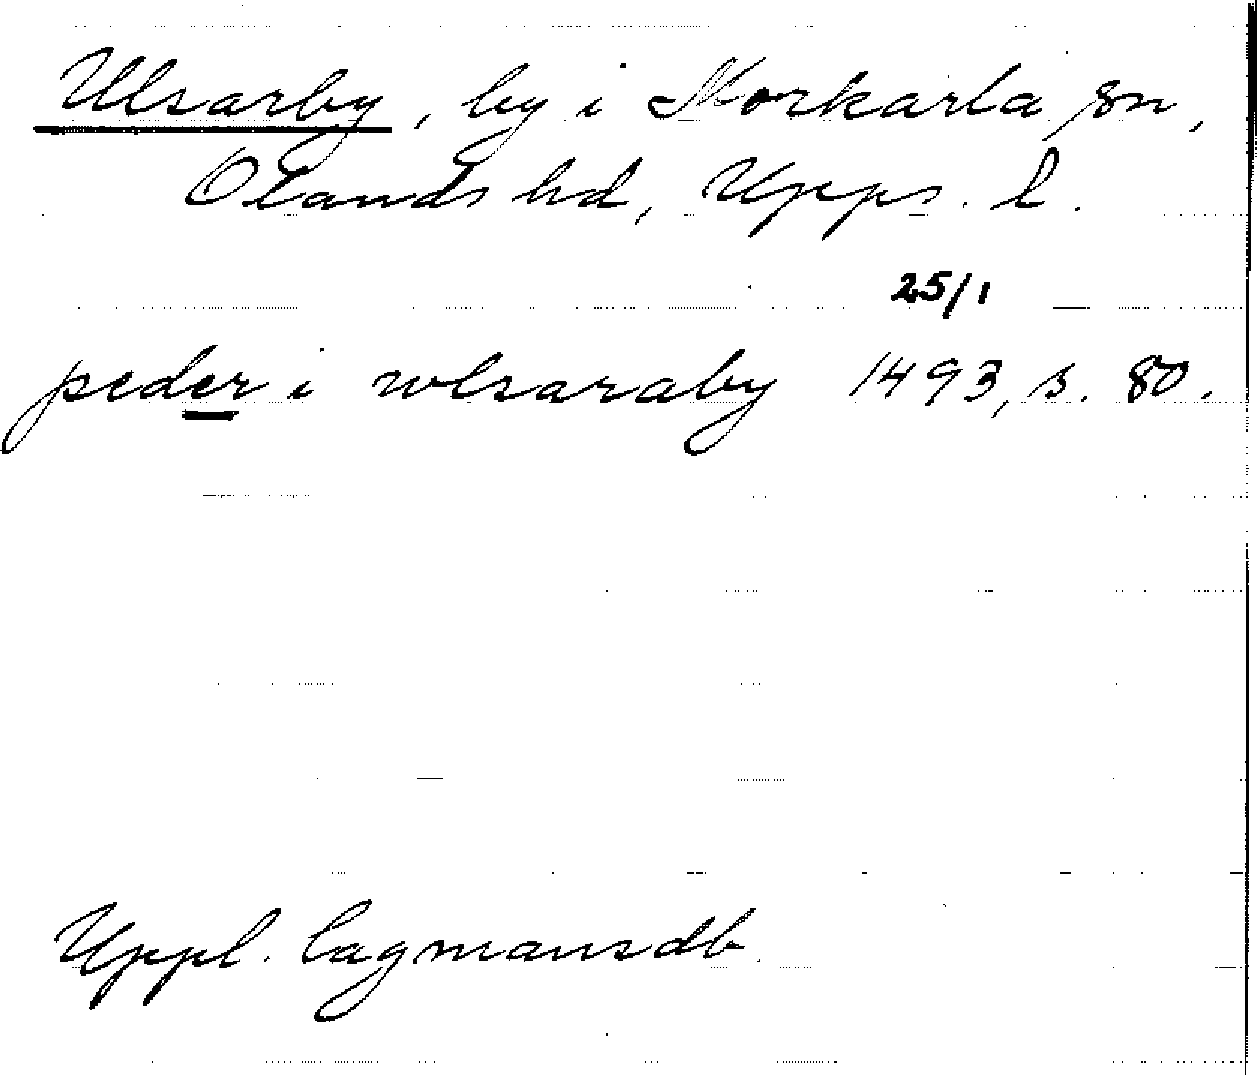 Ulsarby, by i Morkarla sn,
Olands hd, Upps. l.
25/1
peder i wlsaraby 1493, s. 80.
Uppl. lagmansdb.